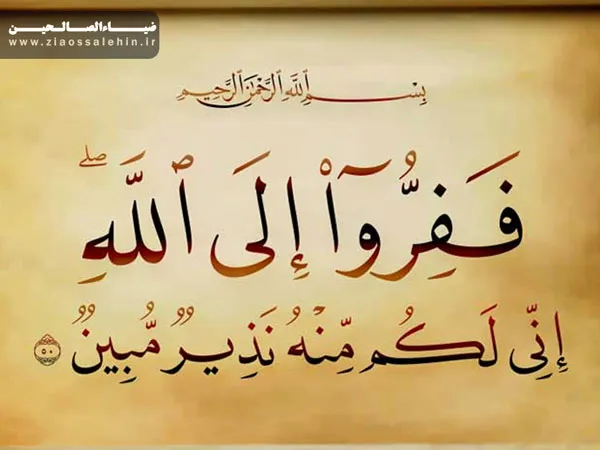 ضیاءالصالحین
www.ziaossalehin.ir
بِسْمِ اللَّهِ الرَّحْمَٰنِ الرَّحِيمِ
فَفِرُّوٓا۟ إِلَى ٱللَّهِ ۖ
إِنِّى لَكُم مِّنْهُ نَذِيرٌ مُّبِينٌ ۝٥٠